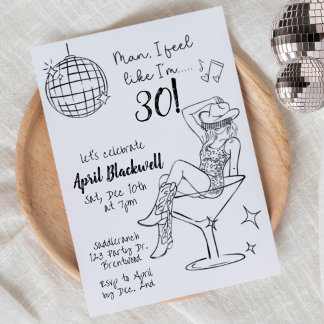 Man, I feel
like I'm.....
30!
let's celebrate
April Blackwell
Sat, Dec 10th
at 7pm
Saddleranch
123 Party Dr.
Brentwood
Rsvp to April
by Dec. 2nd